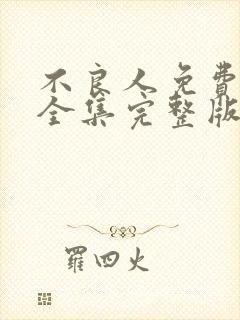 不良人免費
全集完整版
羅四火